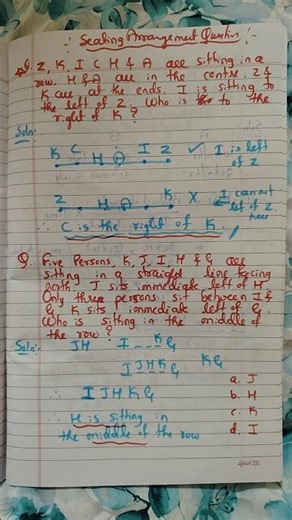 Seating Arrangement Question
Q. Z, K, I C H & A are sitting in a
row. H & A are in the centre. Z &
K are at the ends. I is sitting to
the left of Z. Who is to the
right of K?
Soln:
K C H A I Z ✓ I is left
of Z
Z H A K X I cannot
left of Z
here
∴ C is the right of K.
Q. Five Persons, K, J, I, H & G are
sitting in a straight line facing
north. J sits immediate left of H.
Only three persons sit between I &
G. K sits immediate left of G.
Who is sitting in the middle of
the row?
Soln: JH I _ _ K G
I J H K G KG
∴ I J H K G
a. J
b. H
c. K
d. I
H is sitting in
the middle of the row